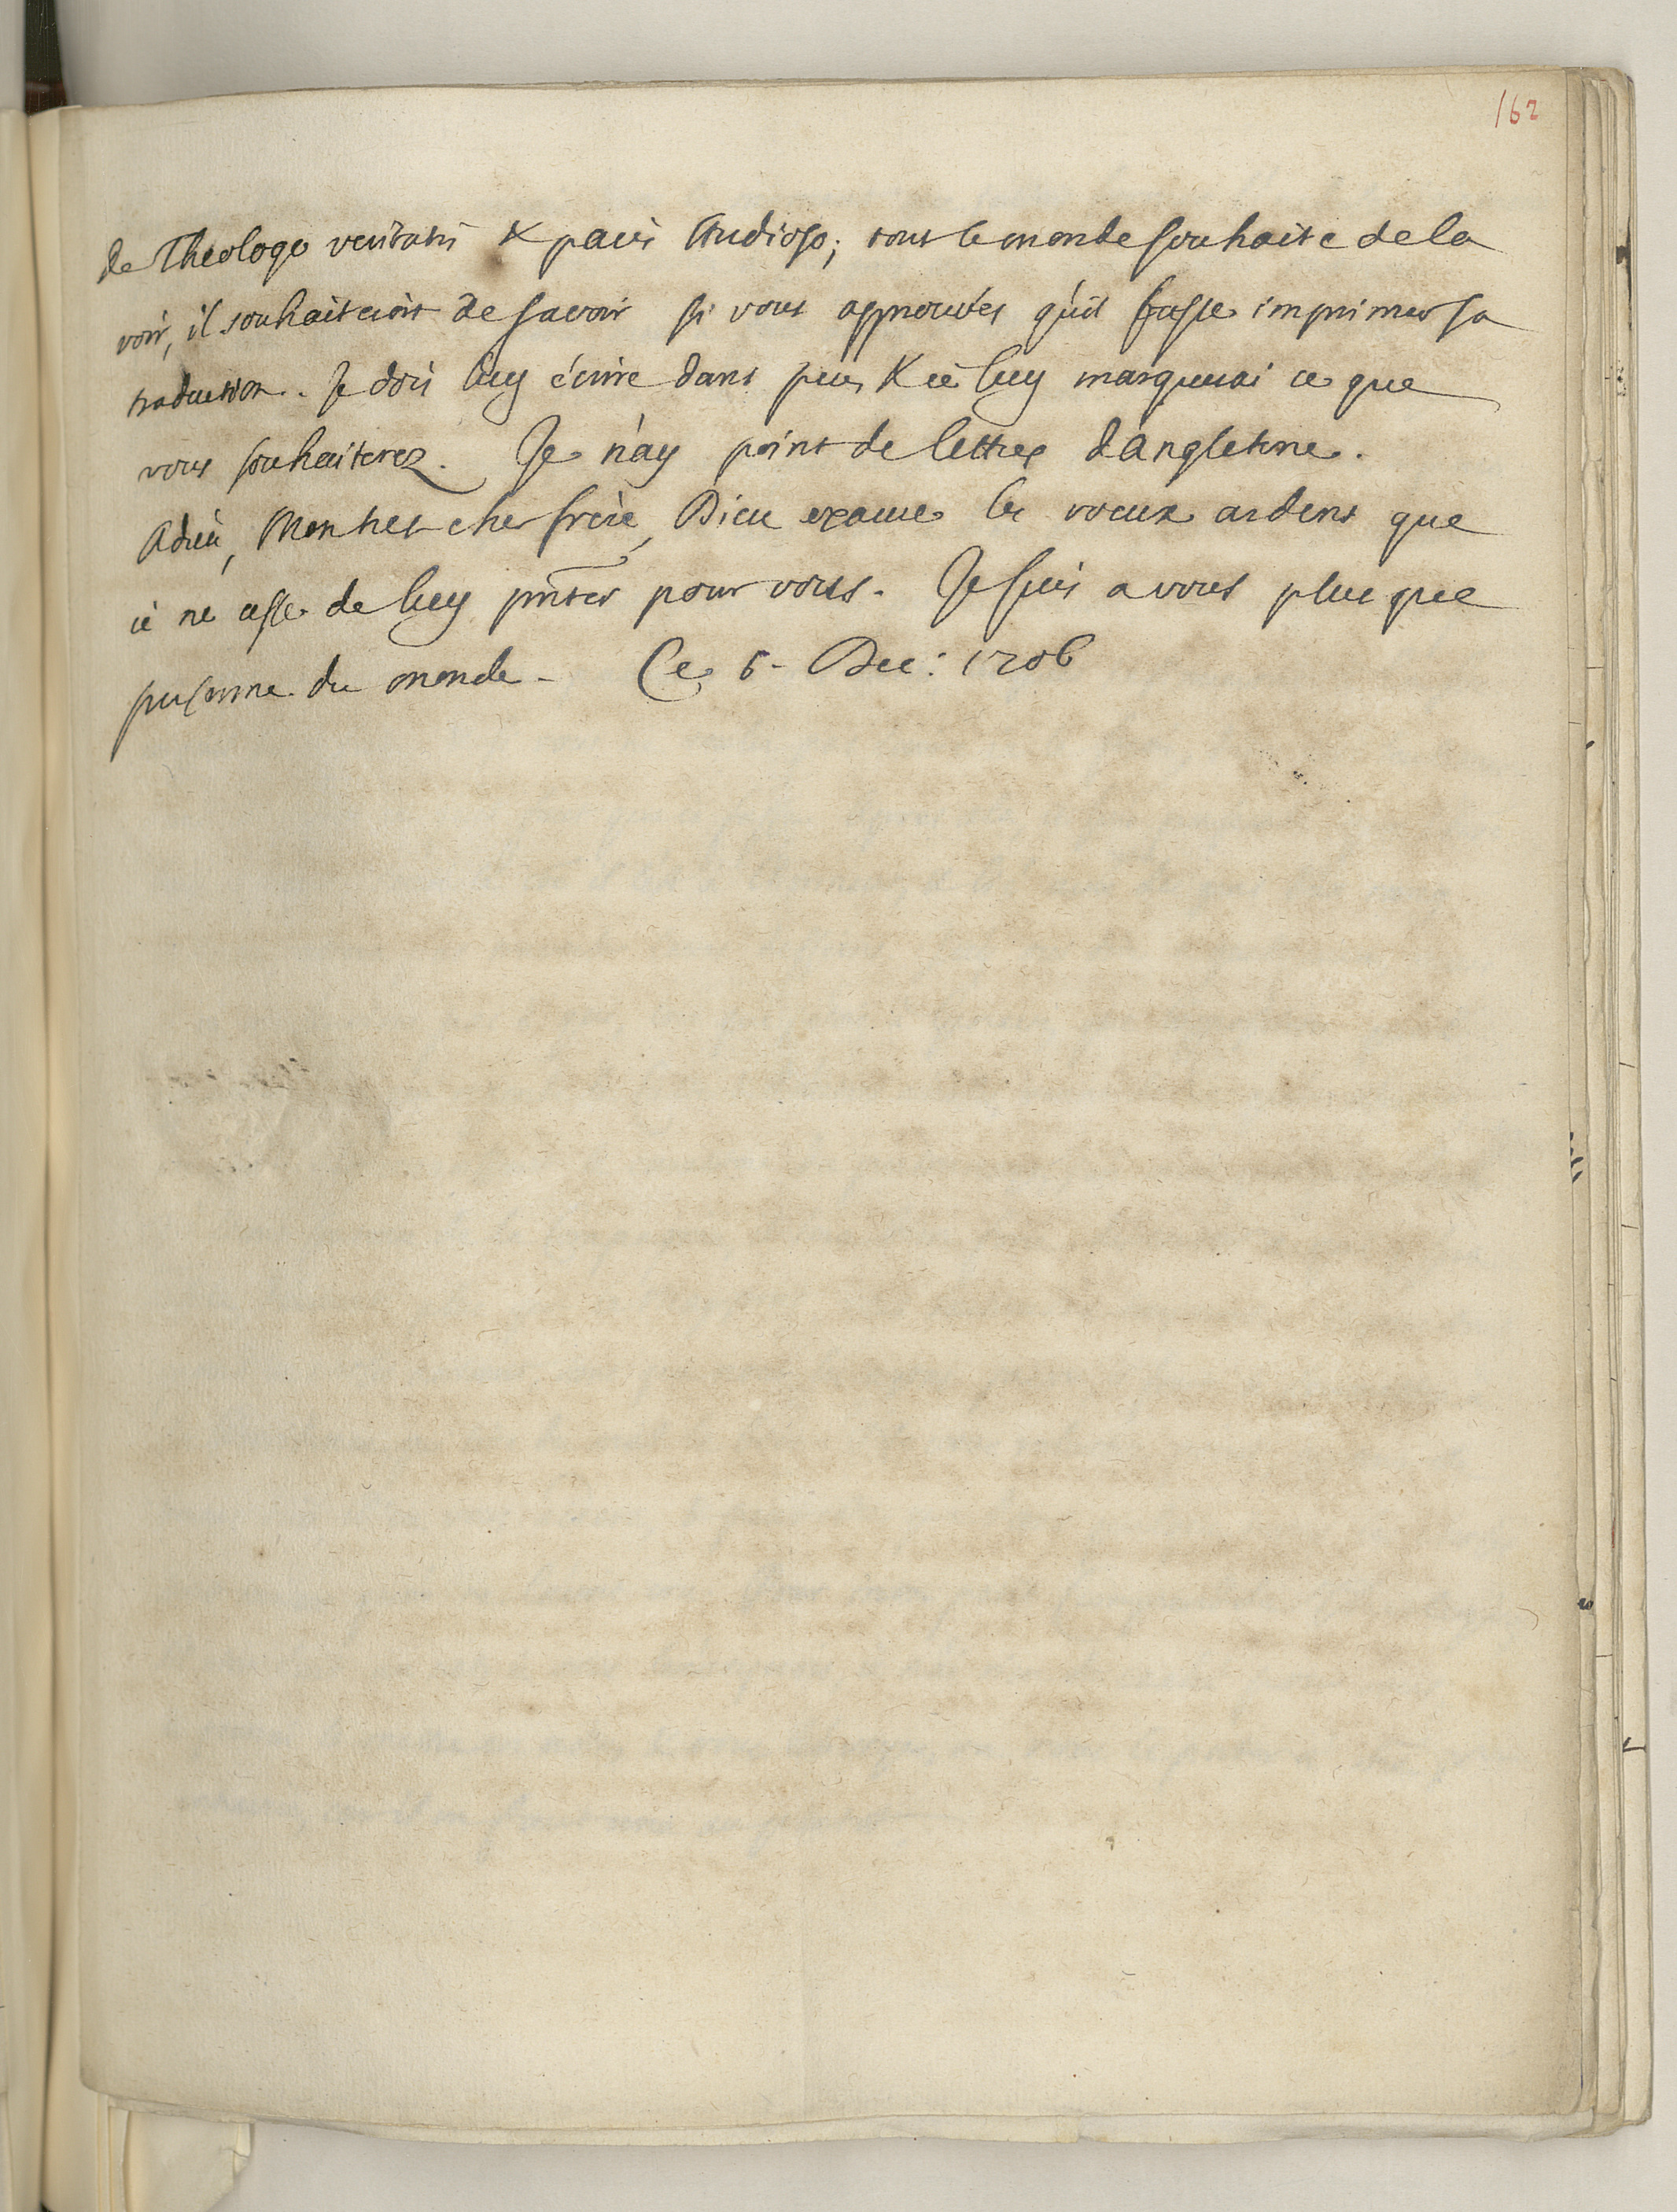 162
de Theologo veritatis & pacis studioso; tout le monde souhaite de la
voir, il souhaiteroit de savoir si vous approuvés qu'il fasse imprimer sa
traduction. Je dois luy écrire dans peu, & ie luy marquerai ce que
vous souhaiterez. Je n'ay point de lettres d'angleterre.
Adieu, Mon tres cher frère, Dieu exauce les voeux ardens que
ie ne cesse de luy pnter pour vous. Je suis a vous plus que
personne du monde. Ce 6. Dec: 1706